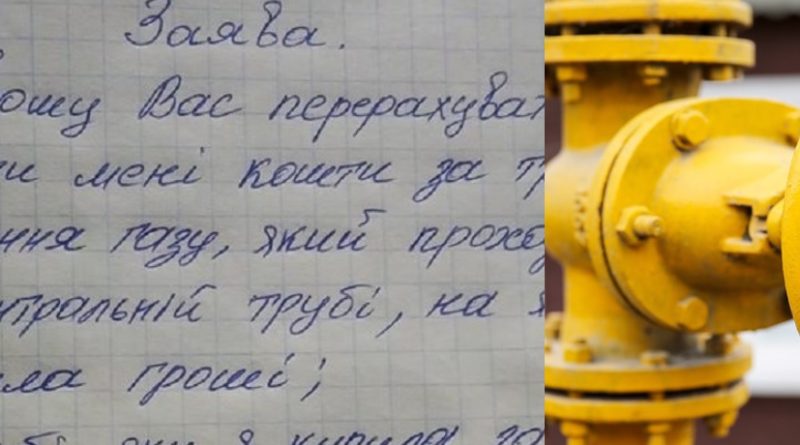 Заява.
ошу Вас перерахуват
и мені кошти за т
ння газу, який прохо
нтральній трубі, на
ла гроші;
бі, яку я купила га